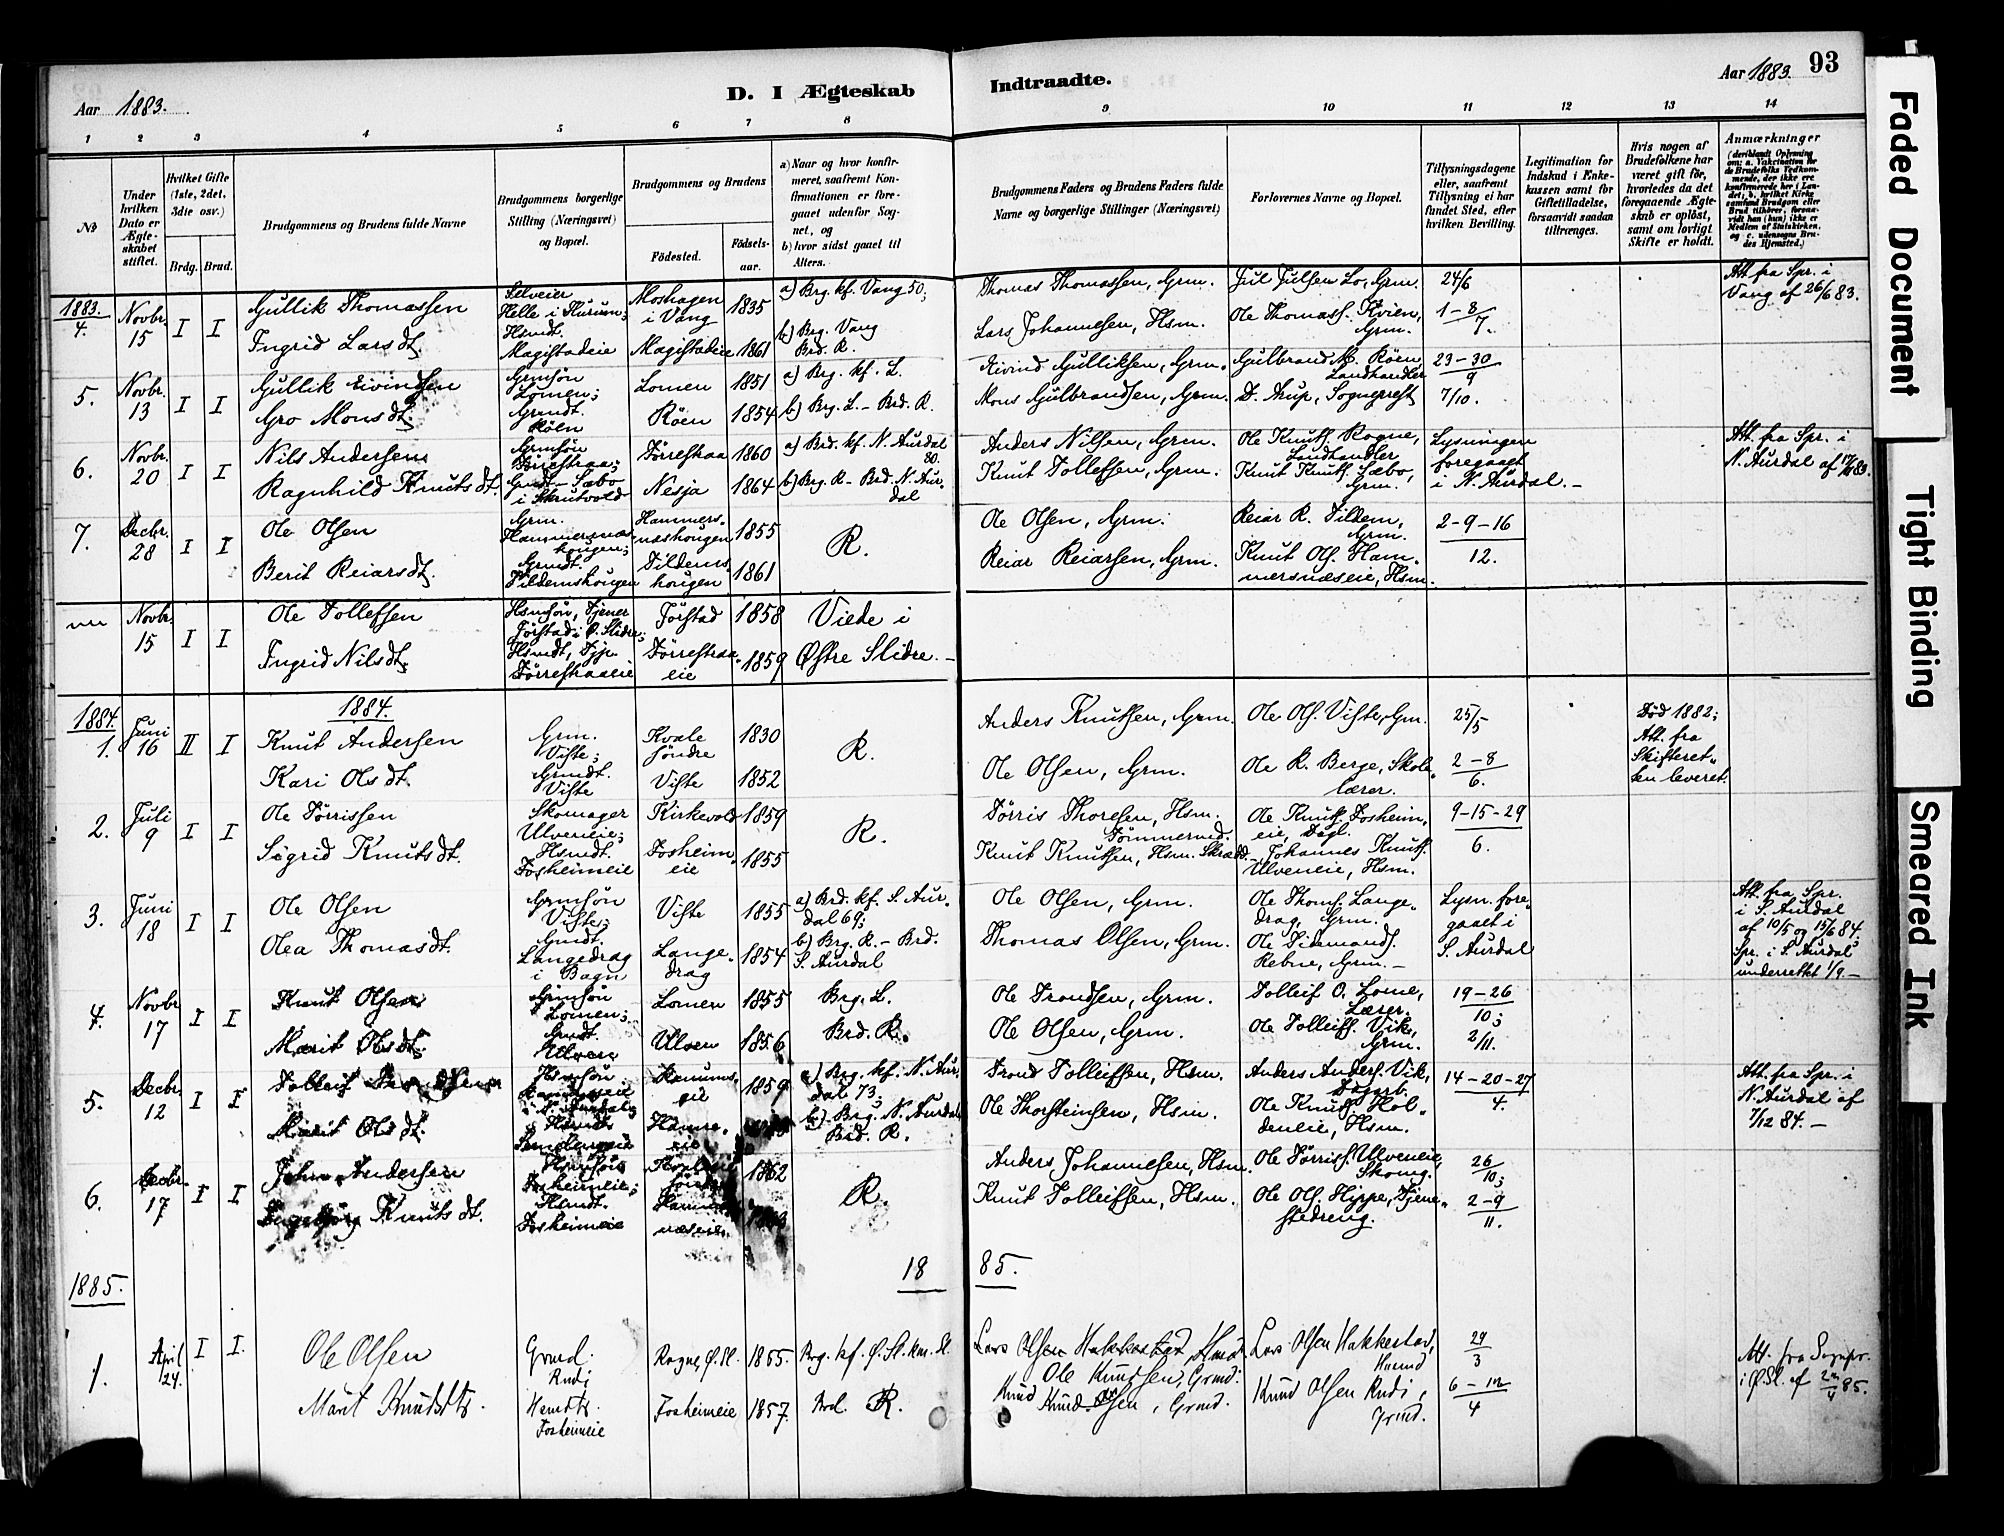 Aar 1883.
D. I Ægteskab
Indtraadte.
Aar 1883.
93
1 2 3 4 5 6 7 8 9 10 11 12 13 14
№
Under hvilken Dato er Ægteskabet stiftet.
Hvilket Gifte (1ste, 2det, 3die osv.)
Brdg. Brud.
Brudgommens og Brudens fulde Navne
Brudgommens borgerlige Stilling (Næringsvei) og Bopæl.
Brudgommens og Brudens
Födested.
Födselsaar.
a) Naar og hvor konfirmeret, saafremt Konfirmationen er foregaaet udenfor Sognet, og
b) hvor sidst gaaet til Alters.
Brudgommens Faders og Brudens Faders fulde Navne og borgerlige Stillinger (Næringsvei)
Forlovernes Navne og Bopæl.
Tillysningsdagene eller, saafremt Tillysning ei har fundet Sted, efter hvilken Bevilling.
Legitimation for Indskud i Enkekassen samt for Giftetilladelse, forsaavidt saadan tiltrænges.
Hvis nogen af Brudefolkene har været gift før, hvorledes da det foregaaende Ægteskab er opløst, samt om lovligt Skifte er holdt.
Anmærkninger
(deriblandt Oplysning om: a. Vakcination for de Brudefolks Vedkommende, der ikke ere konfirmerede her i Landet; b. hvilket Kirkesamfund Brudgom eller Brud tilhører, forsaavidt han (hun) ikke er Medlem af Statskirken, og c. udensogns Brudes Hjemsted.)
1883.
4. Novbr. 15 I I
Gullik Thomassen
Ingrid Larsdt.
Selveier
Helle i Hurum;
Hsmdt.
Magistadeie
Moshagen i Vang 1835
Magistadeie 1861
a) Brg. kf. Vang 50;
b) Brg. Vang
Brd. R.
Thomas Thomassen, Grm.
Lars Johannesen, Hsm.
Jul Julsen Lo, Grm.
Ole Thomass. Kvien, Grm.
24/6
1-8/7.
Att. fra Spr. i
Vang af 26/6 83.
5. Novbr. 13 I I
Gullik Eivindsen
Gro Monsdt.
Grmsøn
Lomen;
Grmdt.
Röen
Lomen 1851
Röen 1854
a) Brg. kf. L.
b) Brg. L. - Brd. R.
Eivind Gulliksen, Grm.
Mons Gulbrandsen, Grm.
Gulbrand M. Röen, Landhandler
D. Aup, Sogneprest
23-30/9
7/10.
6. Novbr. 20 I I
Nils Andersen
Ragnhild Knutsdt.
Grmsøn
Förrestraa;
Grmdt. Sæbo
i Skrutvold
Förrestraa 1860
Nesja 1864
a) Brd. kf. N. Aurdal 80.
b) Brg. R - Brd. N. Aurdal
Anders Nilsen, Grm.
Knut Tollefsen, Grm.
Ole Knuts. Rogne, Landhandler
Knut Knuts. Sæbo, Grm.
Lysningen
foregaaet
i N. Aurdal. -
Att. fra Spr. i
N. Aurdal af 83.
7. Decbr. 28 I I
Ole Olsen
Berit Reiarsdt.
Grm.
Hammersnæshougen;
Grmdt.
Tildemshougen
Hammersnæshougen 1855
Tildemshougen 1861
R.
Ole Olsen, Grm.
Reiar Reiarsen, Grm.
Reiar R. Tildem, Grm.
Knut Ols. Hammersnæseie, Hsm.
2-9-16/12.
Novbr. 15 I I
Ole Tollefsen
Ingrid Nilsdt.
Hsmsøn, Tjener
Jörstad i Ø. Slidre;
Hsmdt., Tjp.
Förrestraaeie
Jörstad 1858
Förrestraaeie 1859
Viede i
Østre Slidre. -
1884.
1884.
1. Juni 16 II I
Knut Andersen
Kari Olsdt.
Grm.
Viste;
Grmdt.
Viste
Kvale söndre 1830
Viste 1852
R.
Anders Knutsen, Grm.
Ole Olsen, Grm.
Ole Ols. Viste, Gm.
Ole K. Berge, Skolelærer.
25/5
2-8/6.
Død 1882;
Att. fra
Skifteretten leveret.
2. Juli 9 I I
Ole Törrissen
Sigrid Knutsdt.
Skomager
Ulveneie;
Hsmdt.
Fosheimeie
Kirkevold 1859
Fosheimeie 1855
R.
Törris Thoresen, Hsm. Tömmermd.
Knut Knutsen, Hsm. Skræd.
Ole Knuts. Fosheimeie, Dagl.
Johannes Knuts. Ulveneie, Hsm.
9-15-29
6.
3. Juni 18 I I
Ole Olsen
Olea Thomasdt.
Grmsøn
Viste;
Grmdt.
Langedrag
i Bagn
Viste 1855
Langedrag 1854
a) Brd. kf. S. Aurdal 69;
b) Brg. R. - Brd.
S. Aurdal
Ole Olsen, Grm.
Thomas Olsen, Grm.
Ole Thoms. Langedrag, Grm.
Ole Sirmands. Rebne, Grm. -
Lysn. foregaaet i
S. Aurdal
Att. fra Spr.
i S. Aurdal
af 10/5 og 15/6 84.
Spr. i S. Aurdal
underrettet 1/9 -
4. Novbr 17 I I
Knut Olsen
Marit Olsdt.
Grmsøn
Lomen;
Grmdt.
Ulven
Lomen 1855
Ulven 1856
Brg. L.
Brd. R.
Ole Trondsen, Grm.
Ole Olsen, Grm.
Tolleif O. Lome, Lærer.
Ole Tolleifs. Vik, Grm.
19-26/10;
2/11.
5. Decbr. 12 I I
Tolleif Trondsen
Marit Olsdt.
Hsmsøn
N. Aurdal;
Hsmdt.
1859
a) Brg. kf. N. Aurdal 73;
b) Brg. N. Aurdal
Brd. R.
Trond Tolleifsen, Hsm.
Ole Thorsteinsen, Hsm.
Anders Anders. Vik, Dagarb.
Ole Knuts. Holdeneie, Hsm.
14-20-27
4.
Att. fra Spr. i
N. Aurdal af
7/12 84. -
6. Decbr. 17 I I
John Andersen
Ingebjørg Knutsdt.
Hsmsøn
Fosheimeie;
Hsmdt.
Fosheimeie
1862
R.
Anders Johannesen, Hsm.
Knut Tolleifsen, Hsm.
Ole Törriss. Ulveneie, Skomg.
Ole Ols. Hippe, Tjenestedreng.
26/10;
2-9/11.
1885.
1885.
1. April 24. I I.
Ole Olsen
Marit Knudsdtr.
Grmd.
Rudi
Hsmdtr.
Fosheimeie
Rogne, Ø. Sl. 1855.
Fosheimeie 1857.
Brg. kf. Ø. Sl. km. Sl.
Brd. R.
Lars Olsen Hakkestad, Hsmd
Ole Knudsen, Grmd:
Knud Olsen, Grmd.
Lars Olsen Hakkestad, Husmd
Knud Olsen Rudi, Grmd.
29/3
6-12/4
Att. fra Sognpr.
i Ø. Sl. af 85.
Faded Document
Tight Binding
Smeared Ink